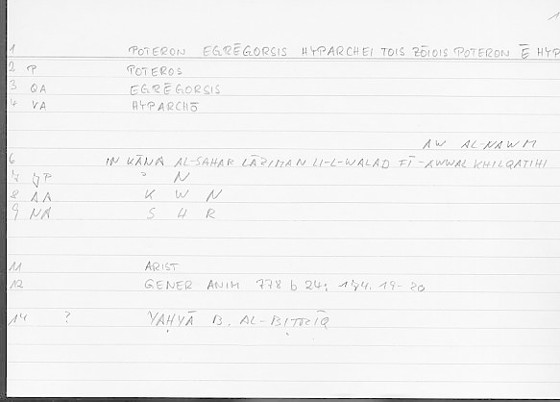 1
1 POTERON EGRĒGORSIS HYPARCHEI TOIS ZŌIOIS POTERON Ē HYP
2 P POTEROS
3 QA EGRĒGORSIS
4 VA HYPARCHŌ
AW AL-NAWM
6 IN KĀNA AL-SAHAR LĀZIMAN LI-L-WALAD FĪ-AWWAL KHILQATIHI
7 ʾ N
8 AA K W N
9 NA S H R
11 ARIST
12 GENER ANIM 778 b 24; 174. 19-20
14 ? YAḤYĀ B. AL-BIṬRĪQ